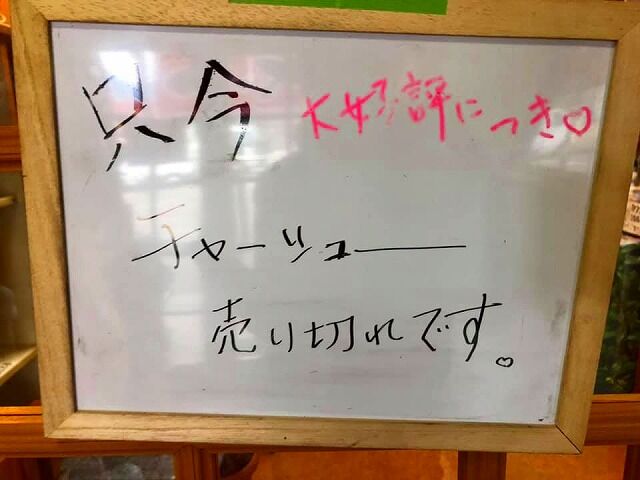 只今 大好評につき♡
チャーシュー
売り切れです。